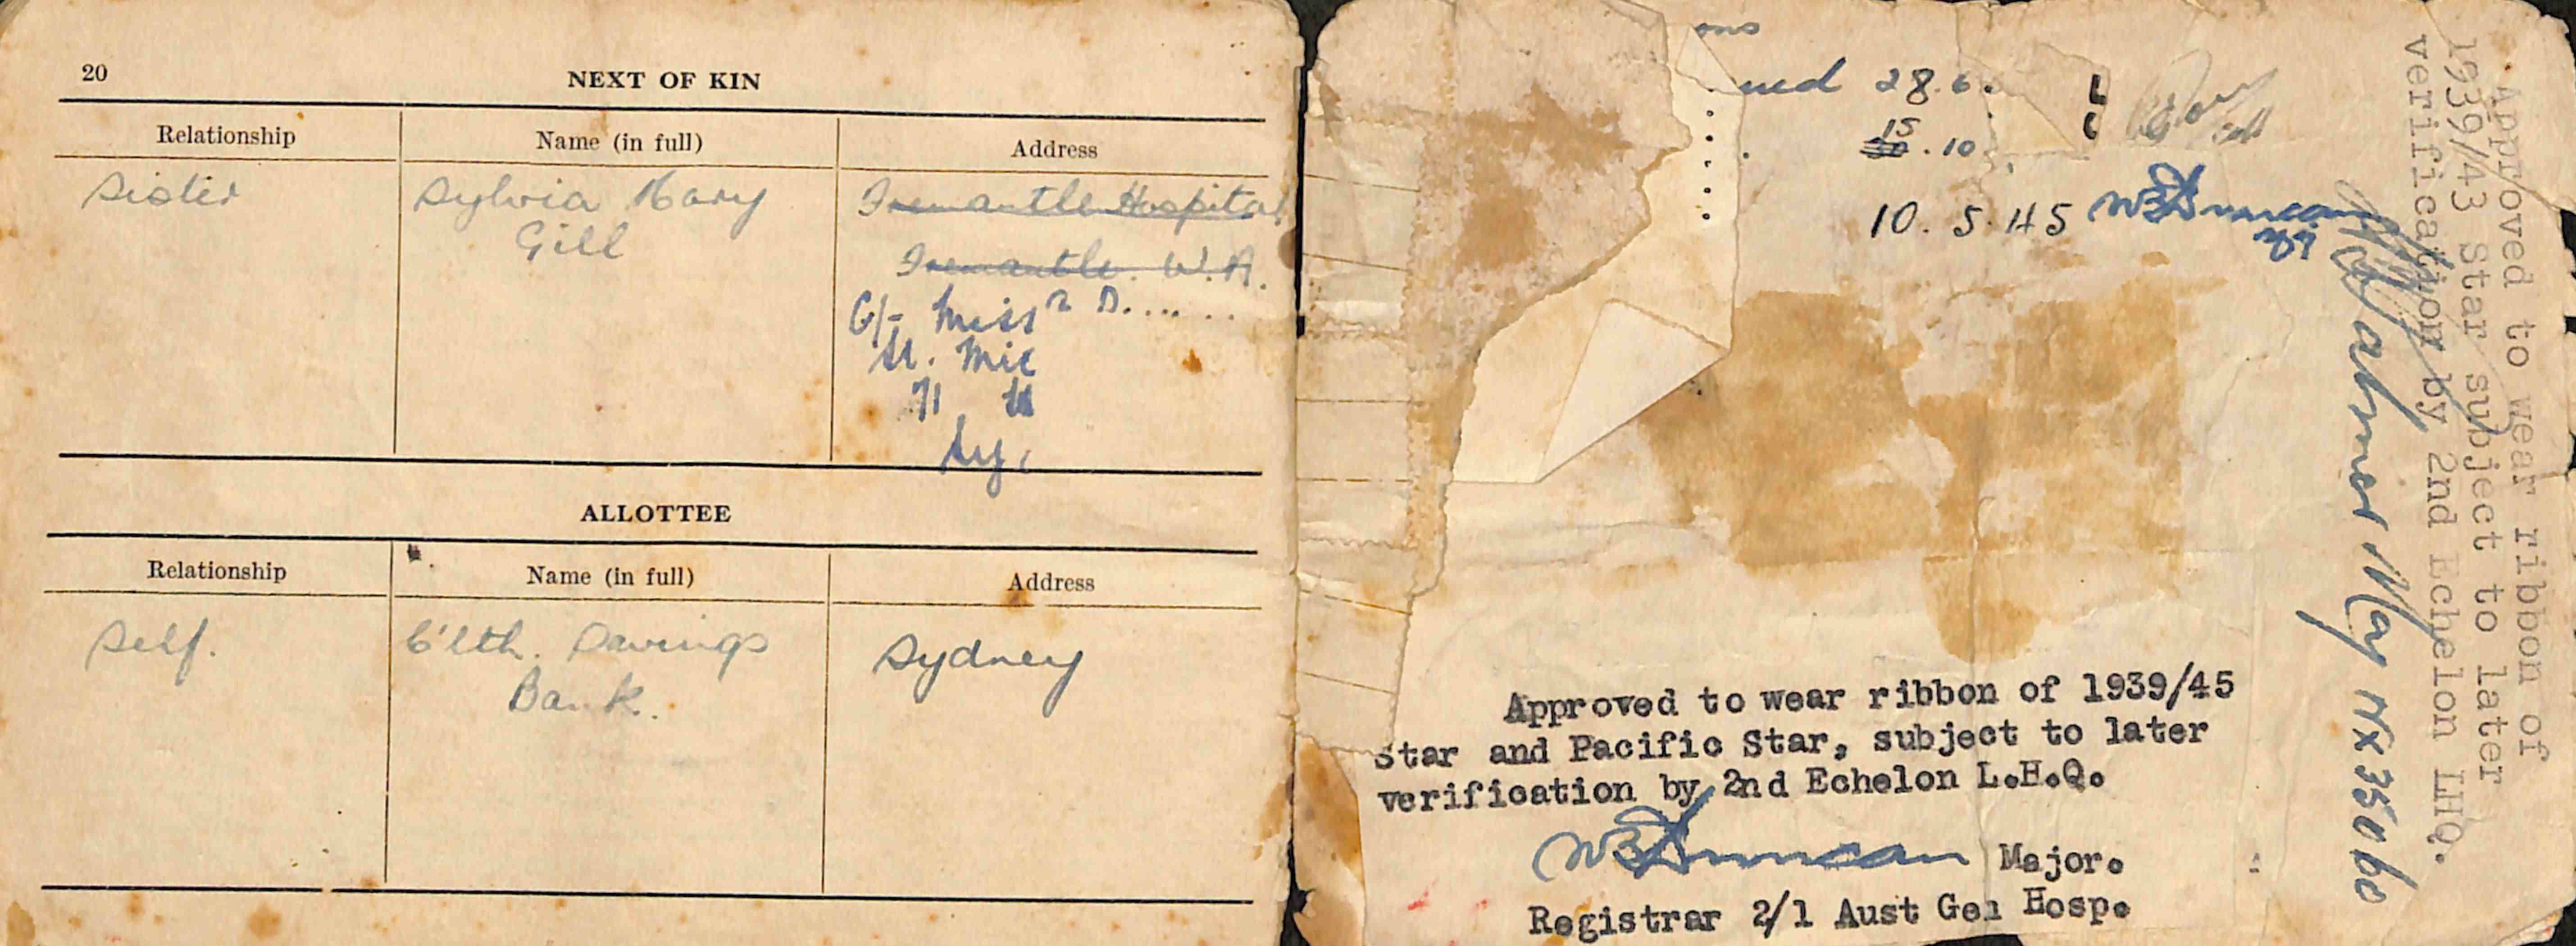 20
NEXT OF KIN
Relationship Name (in full) Address
Sister Sylvia Mary Fremantle Hospital
Gill
Fremantle. W.A.
C/- Miss
St.
71
Sy
ALLOTTEE
Relationship Name (in full) Address
Self. C'lth. Savings Sydney
Bank.
ons
28.6.
15
.10
10.5.45 WB Duncan
Approved to wear ribbon of 1939/45
Star and Pacific Star, subject to later
verification by 2nd Echelon L.H.Q.
WB Duncan Major.
Registrar 2/1 Aust Gen Hosp.
Approved to wear ribbon of
1939/43 Star subject to later
verification by 2nd Echelon LHQ.
May